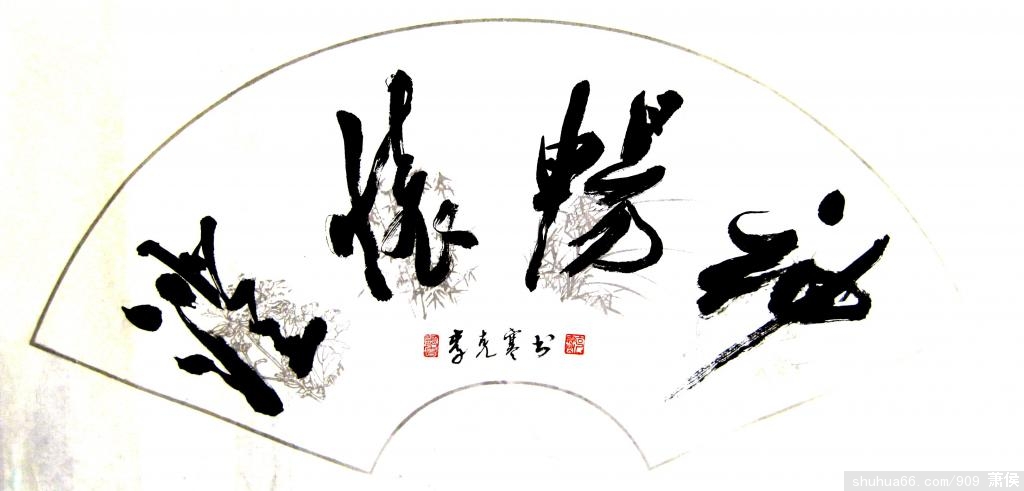 澄懷暢神
李克寒书
shuhua66.com/909 萧侯